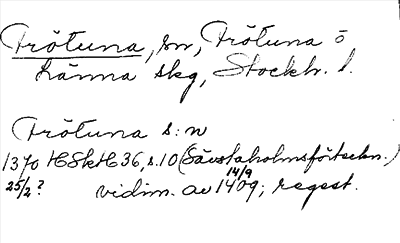 Frötuna, sn, Frötuna o
Länna skg, Stockh. l.
Frötuna s:n
1370 HSkH 36, s. 10 (Sävstaholmsförteckn.)
25/2? vidim. av 14/9 1409; regest.